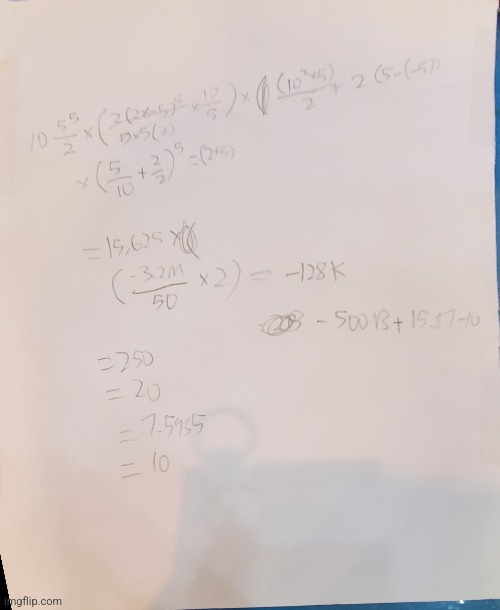 10 5⁵/2 × (2(2×-5)⁵/5×5(2) × 10/5) × (10²×5)/2 + 2(5-(-5))
× (5/10 + 2/2)⁵ - (2×5)
= 15,625 ×
(-3.2M/50 × 2) = -128K
- 500B + 15.57-10
= 250
= 20
= 7.5955
= 10
imgflip.com